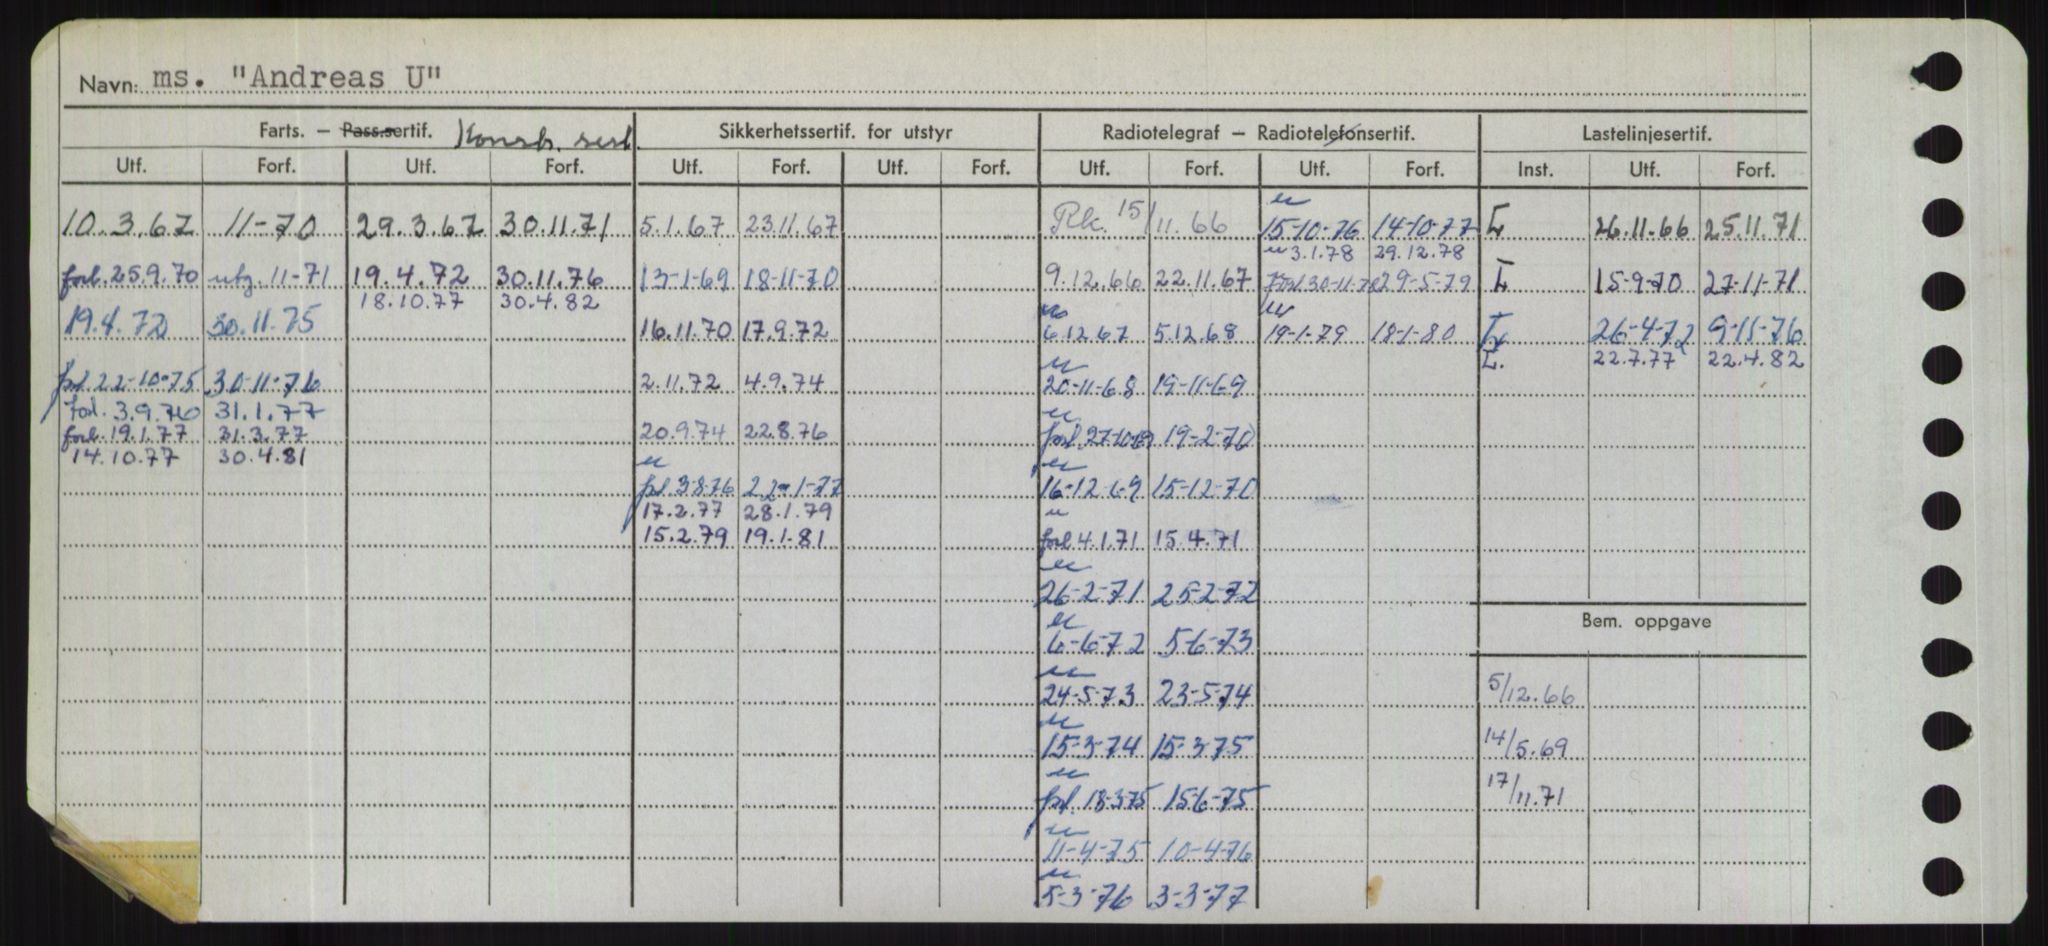 Navn: ms. "Andreas U"
Farts. – Pass.sertif. Konstr. sert. Sikkerhetssertif. for utstyr Radiotelegraf – Radiotelefonsertif. Lastelinjesertif.
Utf. Forf. Utf. Forf. Utf. Forf. Utf. Forf. Utf. Forf. Utf. Forf. Inst. Utf. Forf.
10.3.67 11-70 29.3.67 30.11.71 5.1.67 23.11.67 Rk. 15/11.66 15-10-76 14-10-77 L 26.11.66 25.11.71
3.1.78 29.12.78
forl. 25.9.70 utg. 11-71 19.4.72 30.11.76 13-1-69 18-11-70 9.12.66 22.11.67 Forl. 30-11-78 29-5-79 L 15-9-70 27-11-71
18.10.77 30.4.82
19.4.72 30.11.75 16.11.70 17.9.72 6.12.67 5.12.68 19-1-79 18-1-80 L 26-4-72 9-11-76
L. 22.7.77 22.4.82
forl. 22-10-75 30-11-76 2.11.72 4.9.74 20-11-68 19-11-69
Forl. 3.9.76 31.1.77
forl. 19.1.77 31.3.77 20.9.74 22.8.76 forl. 27-10-69 19-2-70
14.10.77 30.4.81
forl. 3-8-76 22-1-77 16-12-69 15-12-70
17.2.77 28.1.79
15.2.79 19.1.81 forl. 4.1.71 15.4.71
26-2-71 25-2-72
Bem. oppgave
6-6-72 5-6-73
24-5-73 23-5-74 5/12.66
15-3-74 15-3-75 14/5.69
forl. 18-3-75 15-6-75 17/11.71
11-4-75 10-4-76
5-3-76 3-3-77